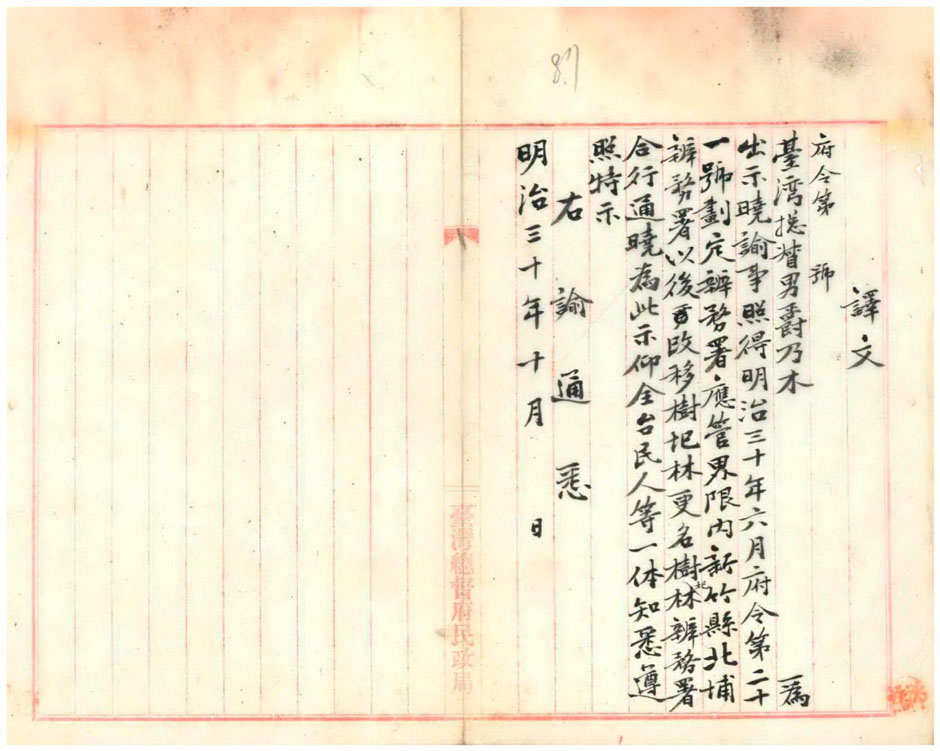 87
譯文
府令第 號
臺湾捴督男爵乃木 為
出示曉諭事照得明治三十年六月府令第二十
一號劃定辨務署應管界限內新竹縣北埔
辨務署以後改移樹圯林更名樹杞林辨務署
合行通曉為此示仰全台民人等一体知悉遵
照特示
右諭通悉
明治三十年十月 日
臺灣總督府民政局